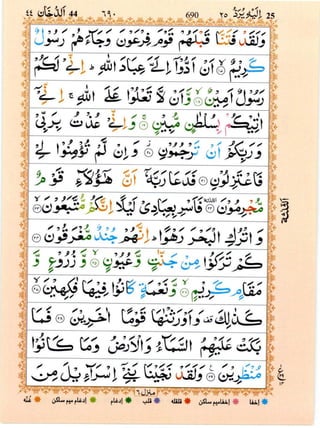 الدخان ٤٤ ٦٩٠ 690 اليه يرد ٢٥ 25
وَلَقَدْ فَتَنَّا قَبْلَهُمْ قَوْمَ فِرْعَوْنَ وَجَآءَهُمْ رَسُوْلٌ
كَرِيْمٌ ﴿١٧﴾ اَنْ اَدُّوْٓا اِلَيَّ عِبَادَ اللّٰهِ ؕ اِنِّيْ لَكُمْ
رَسُوْلٌ اَمِيْنٌ ﴿١٨﴾ وَّاَنْ لَّا تَعْلُوْا عَلَى اللّٰهِ ۚ اِنِّيْٓ
اٰتِيْكُمْ بِسُلْطٰنٍ مُّبِيْنٍ ﴿١٩﴾ وَاِنِّيْ عُذْتُ بِرَبِّيْ
وَرَبِّكُمْ اَنْ تَرْجُمُوْنِ ﴿٢٠﴾ وَاِنْ لَّمْ تُؤْمِنُوْا لِيْ
فَاعْتَزِلُوْنِ ﴿٢١﴾ فَدَعَا رَبَّهٗٓ اَنَّ هٰٓؤُلَآءِ قَوْمٌ
مُّجْرِمُوْنَ ﴿٢٢﴾ فَاَسْرِ بِعِبَادِيْ لَيْلًا اِنَّكُمْ مُّتَّبَعُوْنَ ﴿٢٣﴾
وَاتْرُكِ الْبَحْرَ رَهْوًا ؕ اِنَّهُمْ جُنْدٌ مُّغْرَقُوْنَ ﴿٢٤﴾
كَمْ تَرَكُوْا مِنْ جَنّٰتٍ وَّعُيُوْنٍ ﴿٢٥﴾ وَّزُرُوْعٍ وَّ
مَقَامٍ كَرِيْمٍ ﴿٢٦﴾ وَّنَعْمَةٍ كَانُوْا فِيْهَا فٰكِهِيْنَ ﴿٢٧﴾
كَذٰلِكَ ۫ وَاَوْرَثْنٰهَا قَوْمًا اٰخَرِيْنَ ﴿٢٨﴾ فَمَا
بَكَتْ عَلَيْهِمُ السَّمَآءُ وَالْاَرْضُ وَمَا كَانُوْا
مُنْظَرِيْنَ ﴿٢٩﴾ وَلَقَدْ نَجَّيْنَا بَنِيْٓ اِسْرَآءِيْلَ مِنَ
منزل ٦
اخفا اخفا میم ساکن قلقله قلب ادغام ادغام میم ساکن غنه